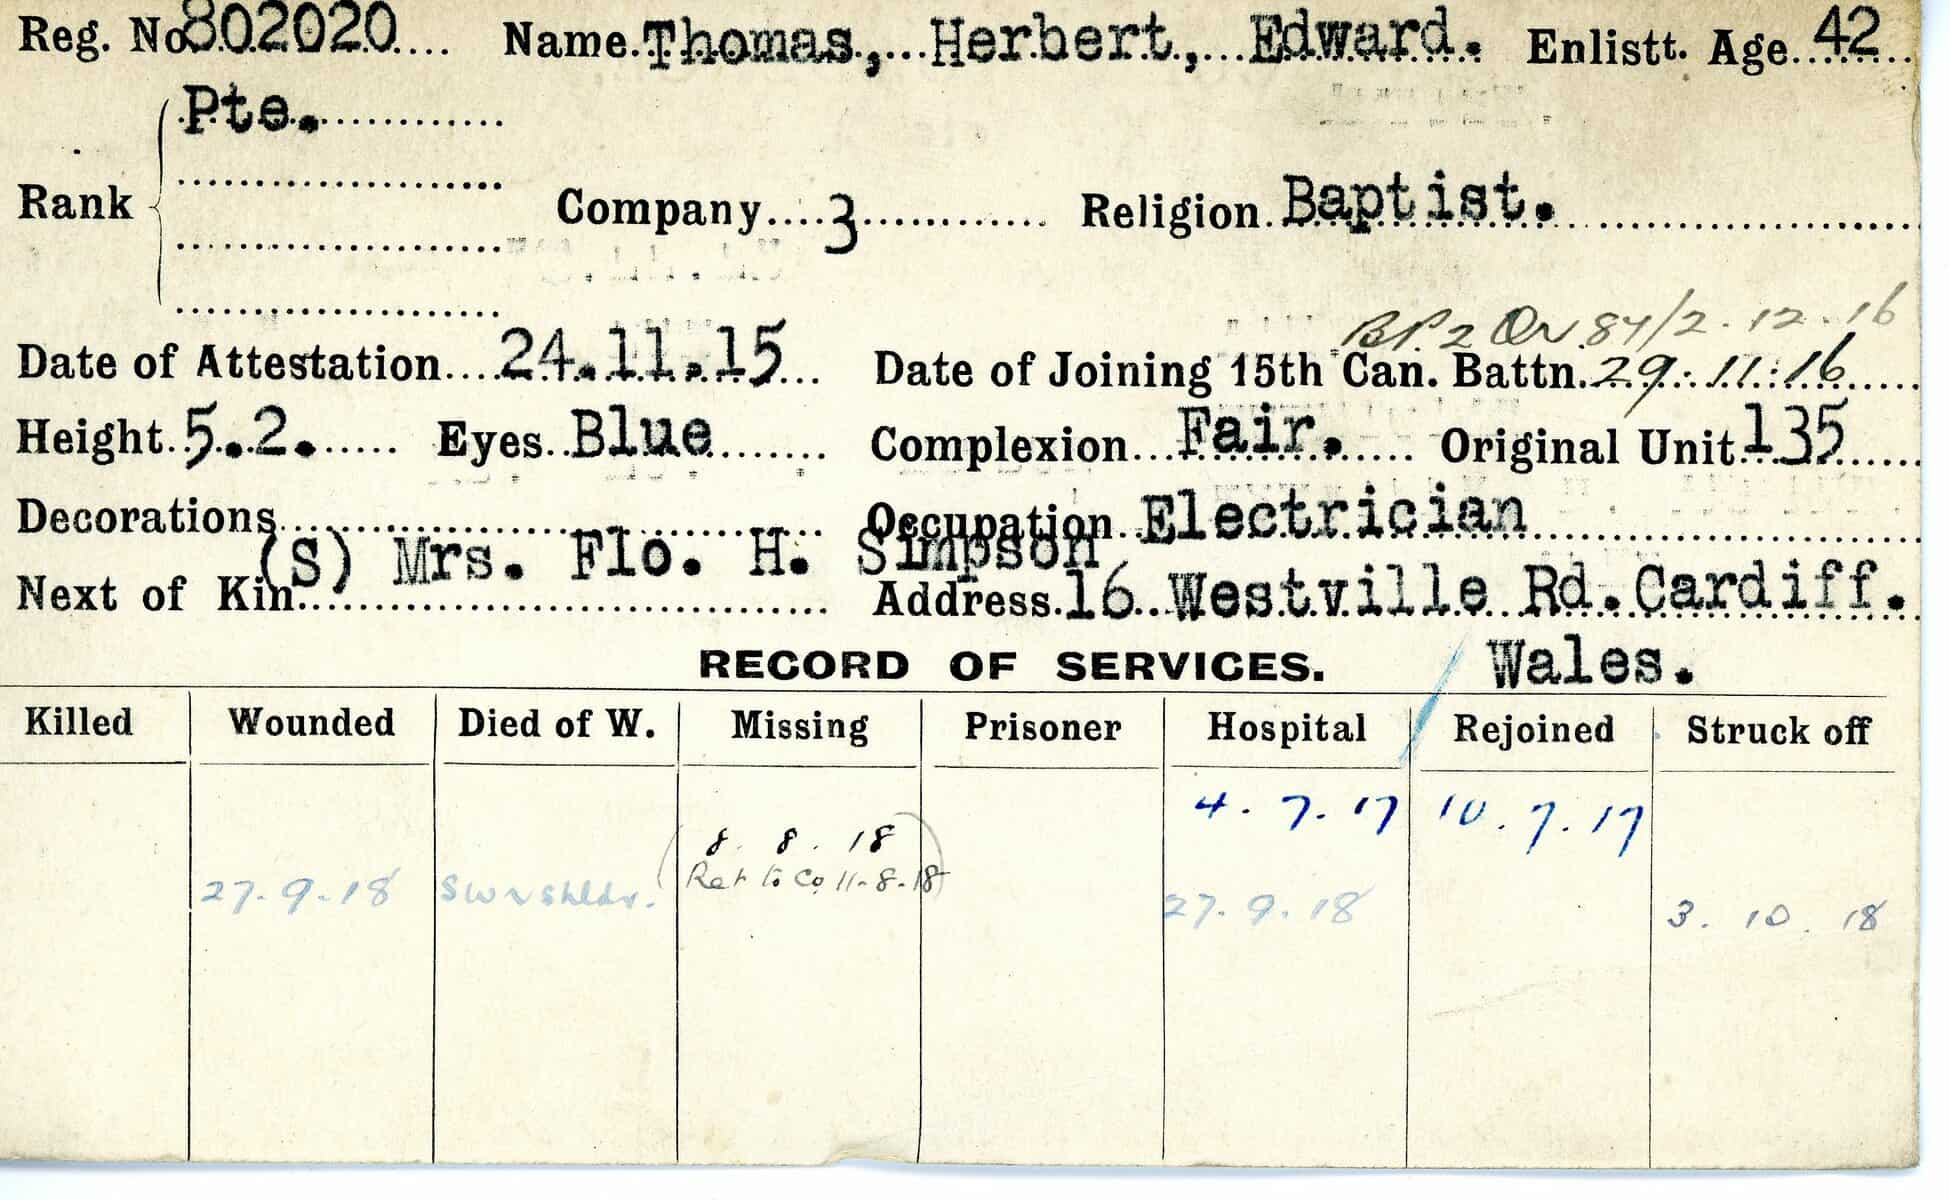 Reg. No 802020.... Name.Thomas,...Herbert,...Edward. Enlistt. Age.42
Pte.
Rank Company....3 Religion.Baptist.
BP.2 On 87/2.12.16
Date of Attestation....24.11.15... Date of Joining 15th Can. Battn.29.11.16
Height.5.2. Eyes.Blue Complexion...Fair. Original Unit.135
Decorations Occupation.Electrician
(S) Mrs. Flo. H. Simpson
Next of Kin Address.16.Westville Rd.Cardiff.
RECORD OF SERVICES. Wales.
Killed Wounded Died of W. Missing Prisoner Hospital Rejoined Struck off
4.7.17 10.7.17
8.8.18
27.9.18 (Ret to Co 11-8-18) 27.9.18 3.10.18